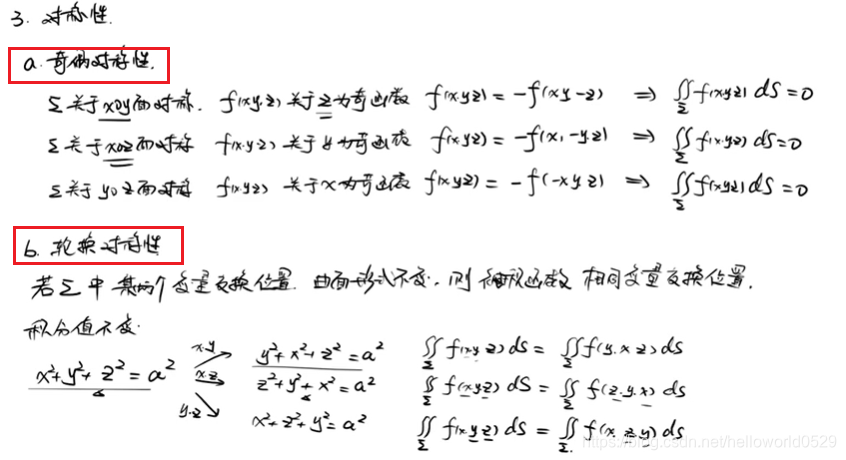 3. 对称性.
a. 奇偶对称性.
Σ关于xoy面对称. f(x.y.z)关于z为奇函数 f(x.y.z) = -f(x y -z) ⇒ ∬_Σ f(x.y.z) dS = 0
Σ关于xoz面对称 f(x.y.z)关于y为奇函数 f(x.y.z) = -f(x, -y z) ⇒ ∬_Σ f(x.y.z) dS = 0
Σ关于yoz面对称 f(x.y.z) 关于x为奇函数 f(x.y.z) = -f(-x y z) ⇒ ∬_Σ f(x.y.z) dS = 0
b. 轮换对称性
若Σ中某两个变量交换位置. 曲面形式不变, 则被积函数相同变量交换位置,
积分值不变.
x²+y²+z²=a²
x.y y²+x²+z²=a² ∬_Σ f(x.y z) dS = ∬_Σ f(y.x z) dS
x.z z²+y²+x²=a² ∬_Σ f(x y z) dS = ∬_Σ f(z.y.x) dS
y.z x²+z²+y²=a² ∬_Σ f(x y z) dS = ∬_Σ f(x. z.y) dS
https://blog.csdn.net/helloworld0529